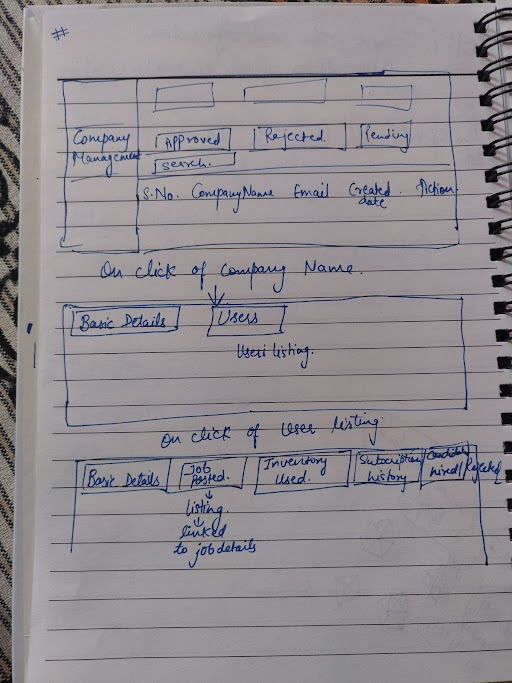 #
Company
Management
Approved Rejected. Pending
Search.
S.No. Company Name Email Created date Action.
On click of Company Name.
Basic Details Users
Users listing.
On click of User listing
Basic Details Job Posted. Inventory Used. Subscription history Candidate hired/Rejected
listing.
linked
to job details